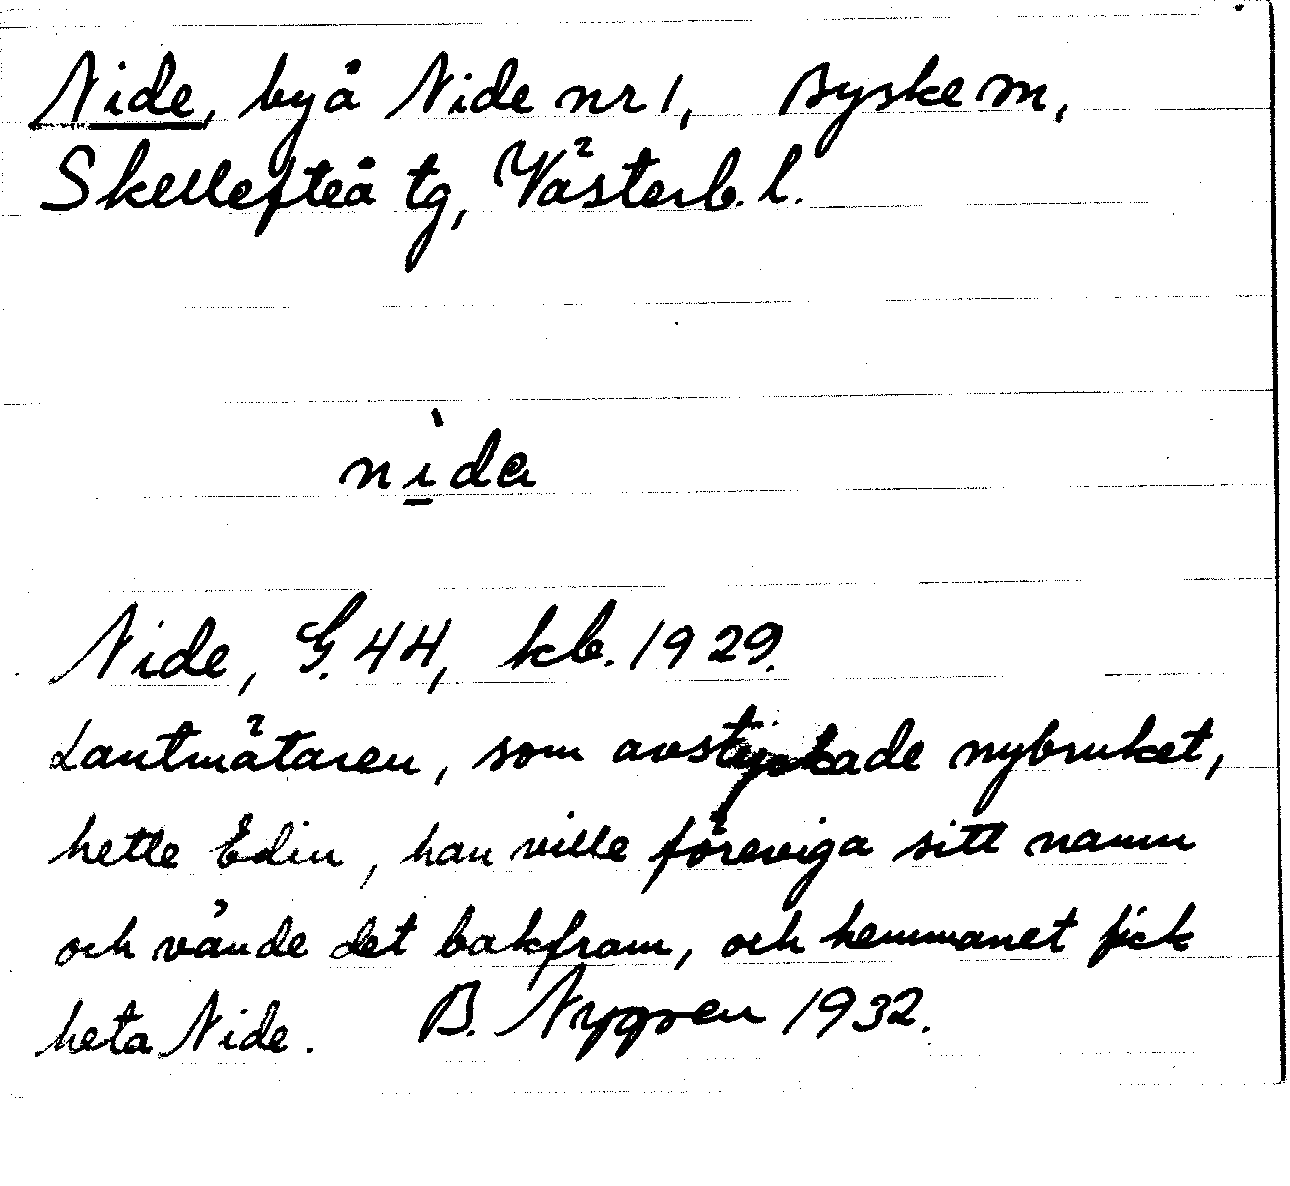 Nide, by å Nide nr 1, Byske sn,
Skellefteå tg, Västerb. l.
nìde
Nide, G. 44, kb. 1929.
Lantmätaren, som avstyckade nybruket,
hette Edin, han ville föreviga sitt namn
och vände det bakfram, och hemmanet fick
heta Nide. B. Nygren 1932.